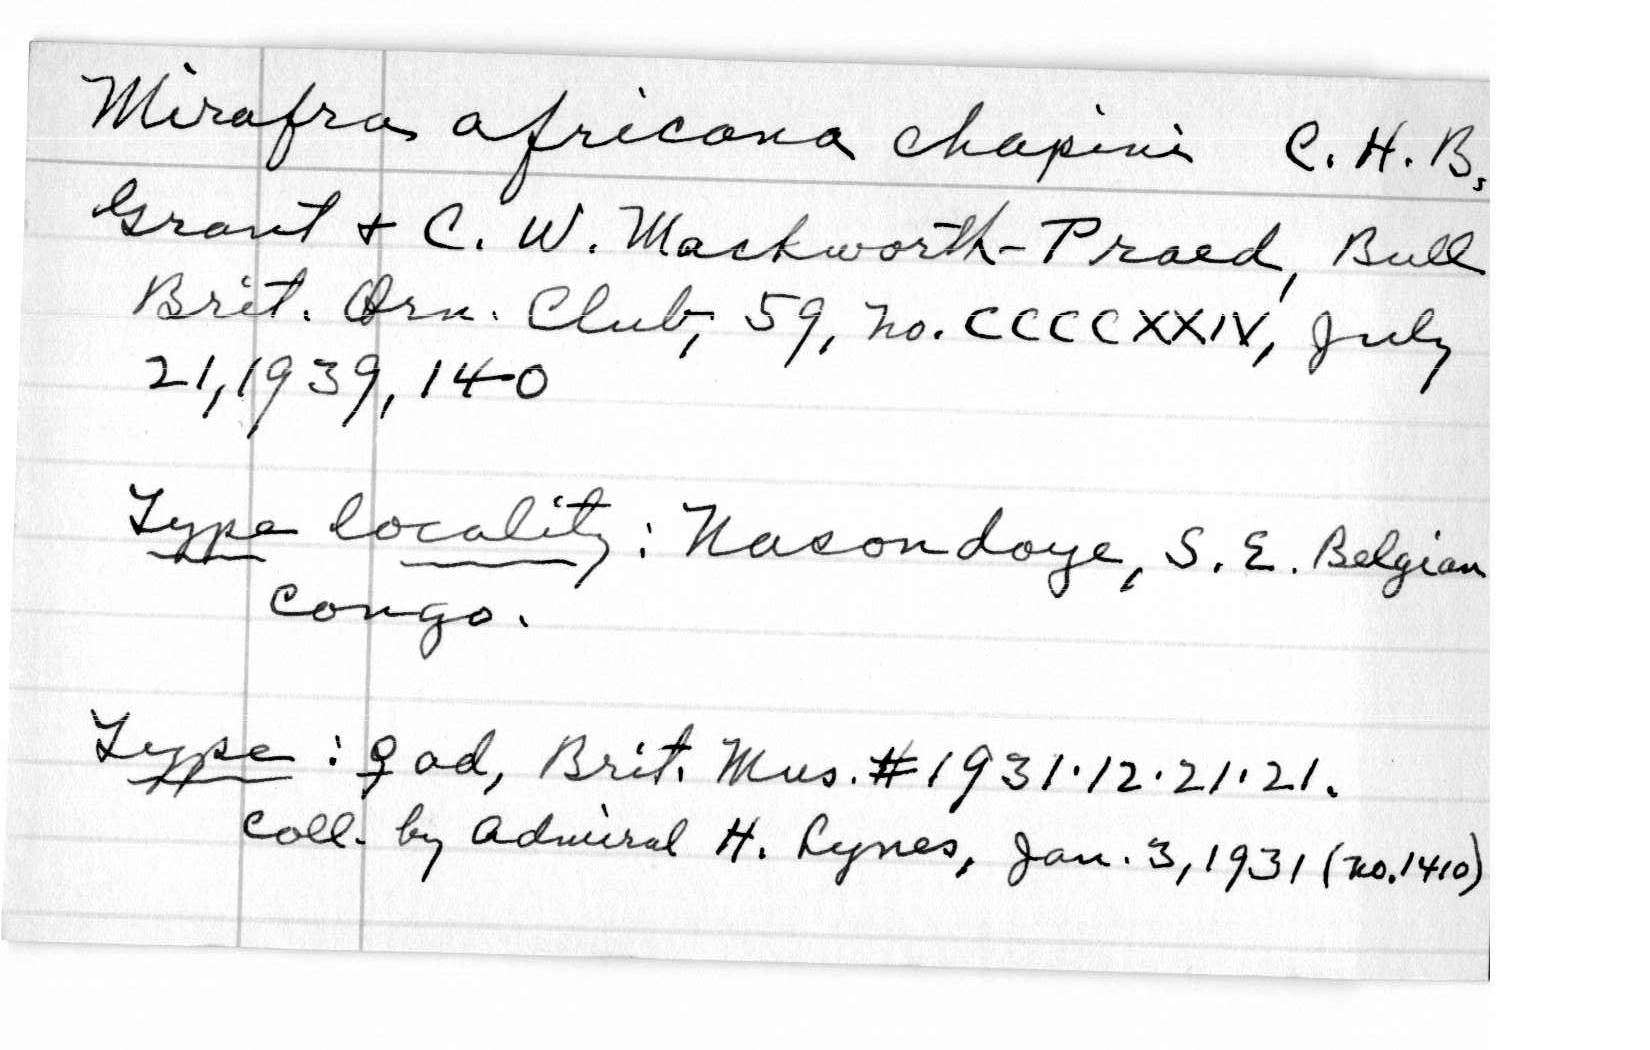 Mirafra africana chapini C. H. B.
Grant + C. W. Mackworth-Praed, Bull
Brit. Orn. Club, 59, no. CCCCXXIV, July
21, 1939, 140
Type locality: Nasondoye, S. E. Belgian
Congo.
Type: ♀ ad, Brit. Mus. # 1931·12·21·21.
Coll. by Admiral H. Lynes, Jan. 3, 1931 (no. 1410)